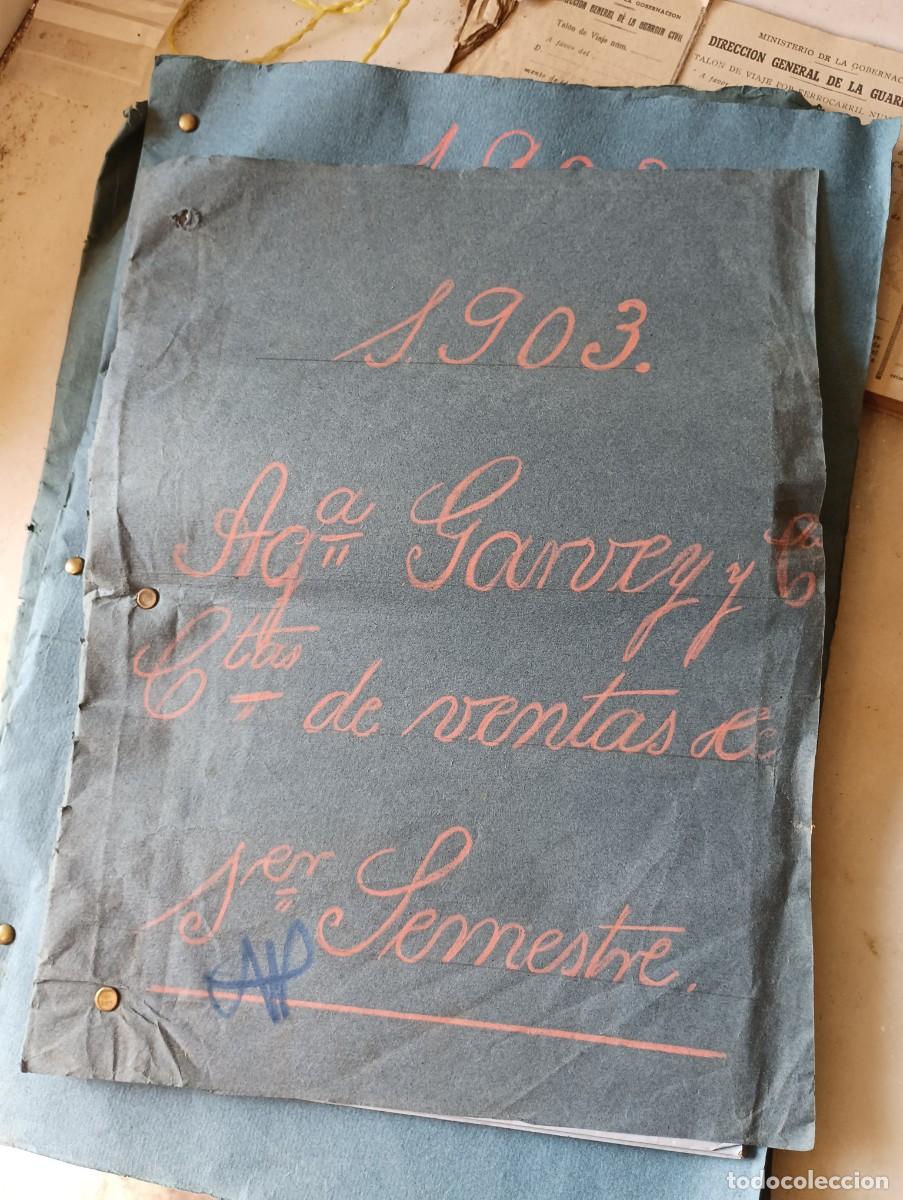 LA GOBERNACION
GENERAL DE LA GUARDIA CIVIL
Talón de Viaje núm.
A favor del
D.
MINISTERIO DE LA GOBERNAC
DIRECCION GENERAL DE LA GUAR
TALON DE VIAJE POR FERROCARRIL NUM
A favor
1903.
Agª Garvey y Cª
Ctas de ventas &c
1er Semestre.
AP
todocoleccion